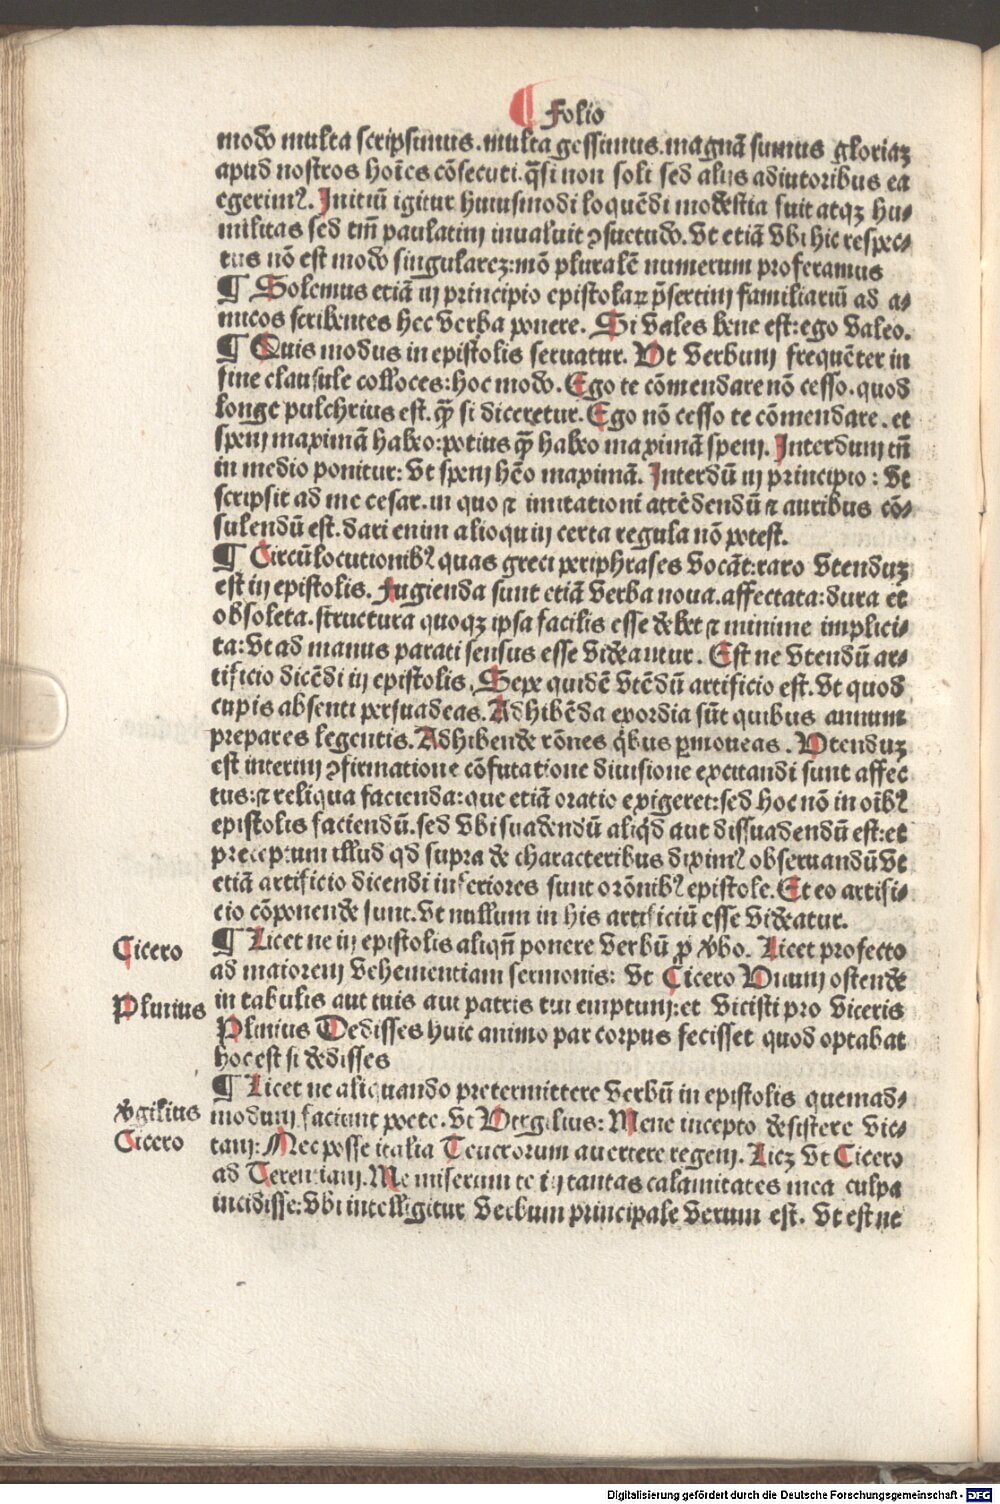 ¶ Folio
modo multa scripsimus. multa gessimus. magnã sumus gloriaꝫ
apud nostros hoĩes cõsecuti. q̃si non soli sed alijs adiutoribus ea
egerimꝰ. Initiũ igitur huiusmodi loquẽdi modestia fuit atqꝫ hu⸗
militas sed tm̃ paulatim inualuit ꝯsuetudo. Vt etiã vbi hic respec⸗
tus nõ est modo singularez: mõ pluralẽ numerum proferamus
¶ Solemus etiã in principio epistolaꝝ p̃sertim familiariũ ad a⸗
micos scribentes hec verba ponere. Si vales bene est: ego valeo.
¶ Quis modus in epistolis seruatur. Vt verbum frequẽter in
fine clausule colloces: hoc modo. Ego te cõmendare nõ cesso. quod
longe pulchrius est. q̃ȝ si diceretur. Ego nõ cesso te cõmendare. et
spem maximã habeo: potius q̃ȝ habeo maximã spem. Interdum tñ
in medio ponitur: vt spem hẽo maximã. Interdũ in principio: vt
scripsit ad me cesar. in quo ⁊ imitationi attẽdendũ ⁊ auribus cõ⸗
sulendũ est. dari enim alioquin certa regula nõ potest.
¶ Circũlocutionibꝰ quas greci periphrases vocãt: raro vtenduꝫ
est in epistolis. Fugienda sunt etiã verba noua. affectata: dura et
obsoleta. structura quoqꝫ ipsa facilis esse debet ⁊ minime implici⸗
ta: vt ad manus parati sensus esse videantur. Est ne vtendũ ar⸗
tificio dicẽdi in epistolis. Sepe quidẽ vtẽdũ artificio est. vt quod
cupis absenti persuadeas. Adhibẽda exordia sũt quibus animum
prepares legentis. Adhibende rõnes q̇bus ꝑmoueas. Vtenduꝫ
est interim ꝯfirmatione cõfutatione diuisione excitandi sunt affec
tus: ⁊ reliqua facienda: que etiã oratio exigeret: sed hoc nõ in oĩbꝰ
epistolis faciendũ. sed vbi suadendũ aliq̇d aut dissuadendũ est: et
preceptum illud qd supra de characteribus diximꝰ obseruandũ vt
etiã artificio dicendi inferiores sunt orõnibꝰ epistole. Et eo artifi⸗
cio cõponende sunt. vt nullum in his artificiũ esse videatur.
¶ Licet ne in epistolis aliqñ ponere verbũ ꝓ v̾bo. Licet profecto
Cicero
ad maiorem vehementiam sermonis: vt Cicero Vnum ostende
in tabulis aut tuis aut patris tui emptum: et vicisti pro viceris
Plinius
Plinius Dedisses huic animo par corpus fecisset quod optabat
hoc est si dedisses
¶ Licet ne aliquando pretermittere verbũ in epistolis quemad⸗
v̾gilius
modum faciunt poete. vt Virgilius: Mene incepto desistere vic⸗
Cicero
tam: Nec posse italia Teucrorum auertere regem. Licꝫ vt Cicero
ad Terentiam. Me miserum te in tantas calamitates mea culpa
incidisse: vbi intelligitur verbum principale verum est. vt est ne
Digitalisierung gefördert durch die Deutsche Forschungsgemeinschaft - DFG